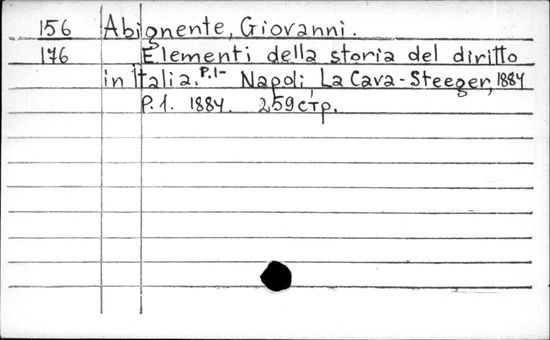 156 Abignente, Giovanni.
176 Elementi della storia del diritto
in Italia. P.1- Napoli, La Cava-Steeger, 1884
P.1. 1884. 259 стр.